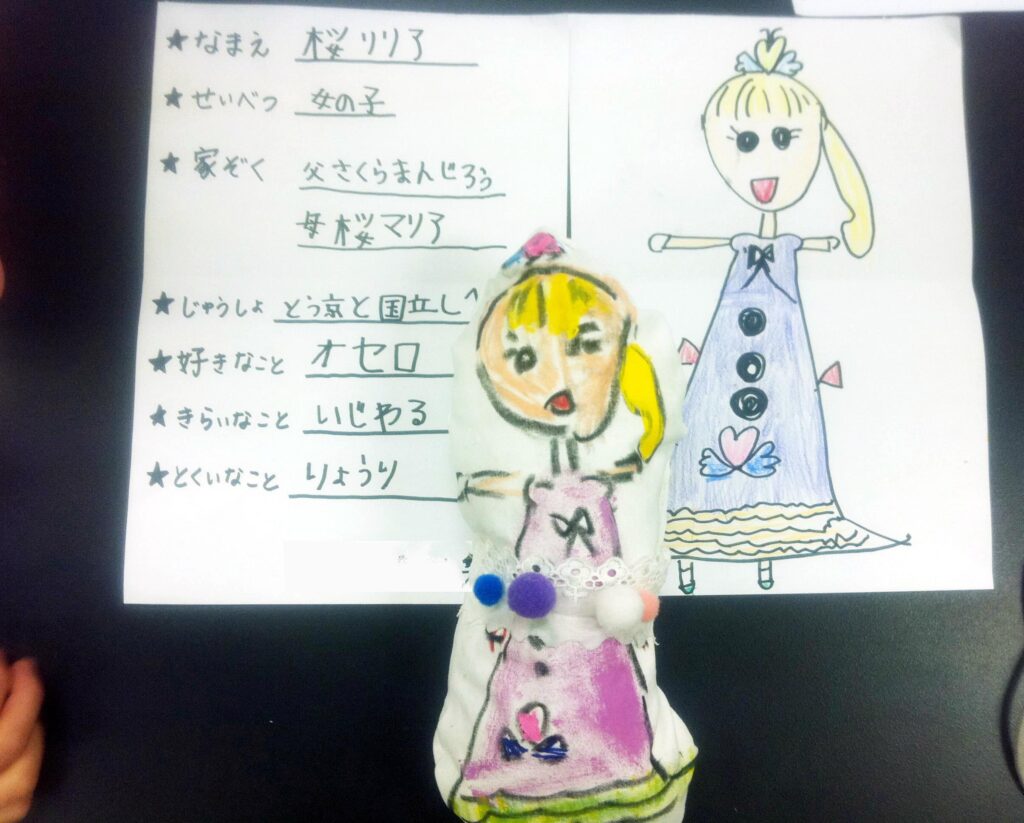 ★なまえ 桜リリア
★せいべつ 女の子
★家ぞく 父さくらまんじろう
母桜マリア
★じゅうしょ とう京と国立し
★好きなこと オセロ
★きらいなこと いじわる
★とくいなこと りょうり